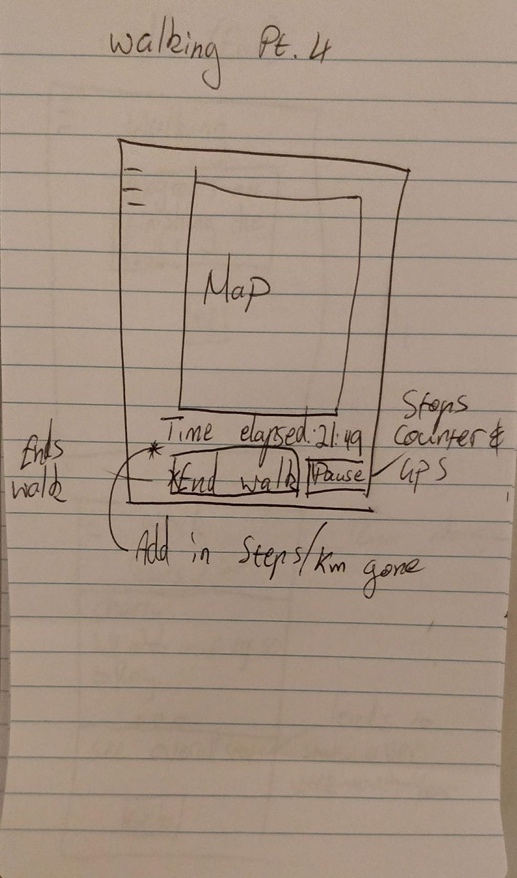 Walking Pt. 4
Map
Time elapsed: 21:49
*
*End walk
Pause
Ends
walk
Stops
counter &
GPS
Add in Steps/Km gone